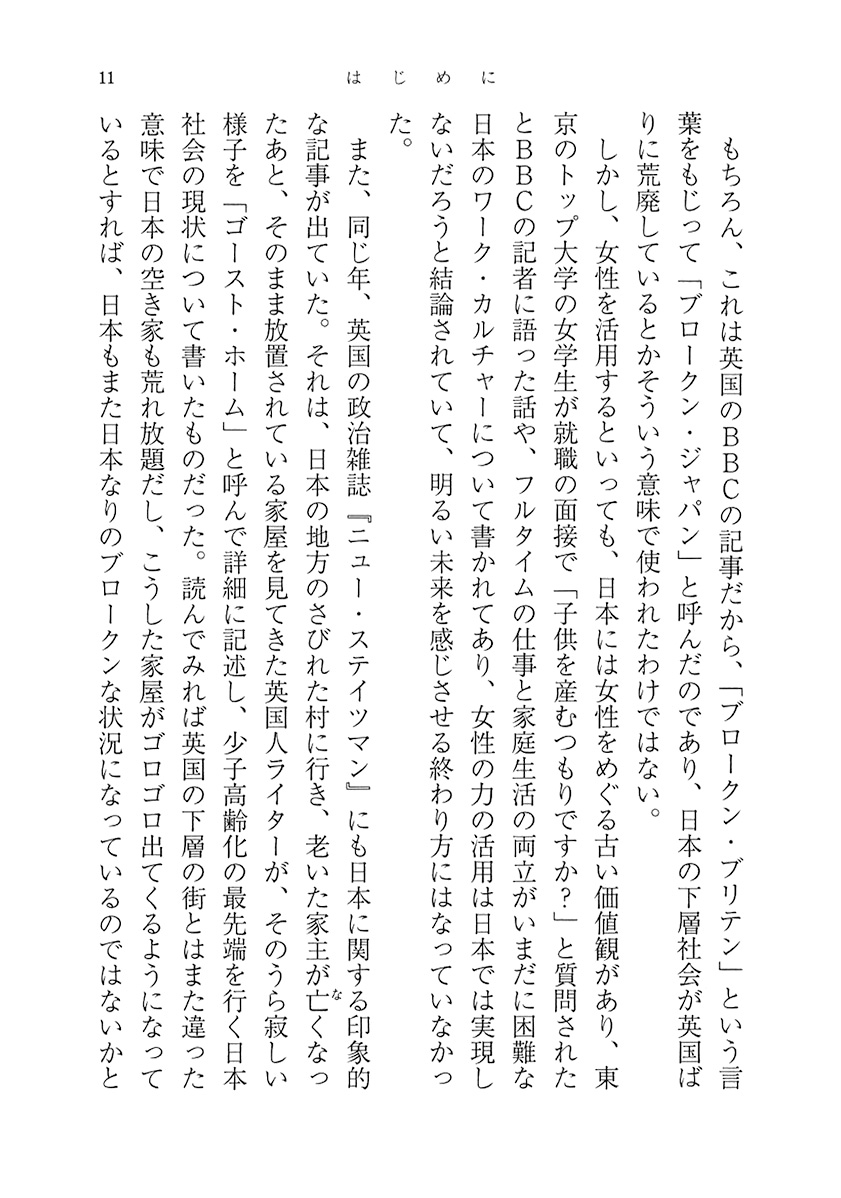 11
はじめに
もちろん、これは英国のBBCの記事だから、「ブロークン・ブリテン」という言
葉をもじって「ブロークン・ジャパン」と呼んだのであり、日本の下層社会が英国ば
りに荒廃しているとかそういう意味で使われたわけではない。
しかし、女性を活用するといっても、日本には女性をめぐる古い価値観があり、東
京のトップ大学の女学生が就職の面接で「子供を産むつもりですか?」と質問された
とBBCの記者に語った話や、フルタイムの仕事と家庭生活の両立がいまだに困難な
日本のワーク・カルチャーについて書かれてあり、女性の力の活用は日本では実現し
ないだろうと結論されていて、明るい未来を感じさせる終わり方にはなっていなかっ
た。
また、同じ年、英国の政治雑誌『ニュー・ステイツマン』にも日本に関する印象的
な記事が出ていた。それは、日本の地方のさびれた村に行き、老いた家主が亡くなっ
たあと、そのまま放置されている家屋を見てきた英国人ライターが、そのうら寂しい
様子を「ゴースト・ホーム」と呼んで詳細に記述し、少子高齢化の最先端を行く日本
社会の現状について書いたものだった。読んでみれば英国の下層の街とはまた違った
意味で日本の空き家も荒れ放題だし、こうした家屋がゴロゴロ出てくるようになって
いるとすれば、日本もまた日本なりのブロークンな状況になっているのではないかと